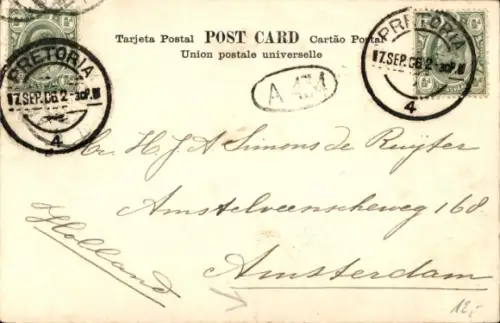 Tarjeta Postal POST CARD Cartão Postal
Union postale universelle
PRETORIA
17.SEP.06.2-30P.M
4
PRETORIA
17.SEP.06.2-30P.M
4
A 4M
Hr H J A Simons de Ruijter
Amstelveenscheweg 168
Amsterdam
Holland
12,-